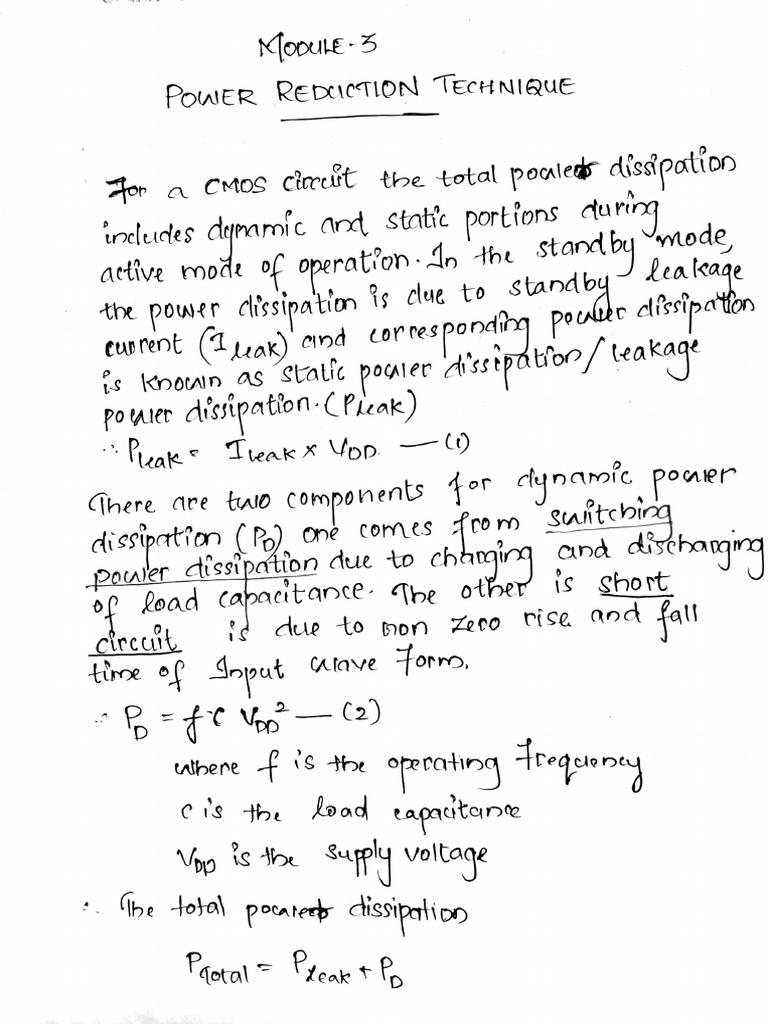 MODULE-3
POWER REDUCTION TECHNIQUE
For a CMOS circuit the total power dissipation
includes dynamic and static portions during
active mode of operation. In the standby mode,
the power dissipation is due to standby leakage
current (I leak) and corresponding power dissipation
is known as static power dissipation/leakage
power dissipation. (Pleak)
∴ Pleak = I leak × VDD — (1)
There are two components for dynamic power
dissipation (PD) one comes from switching
power dissipation due to charging and discharging
of load capacitance. The other is short
circuit is due to non zero rise and fall
time of Input wave form.
∴ PD = f C VDD² — (2)
where f is the operating frequency
C is the load capacitance
VDD is the supply voltage
∴ The total power dissipation
PTotal = Pleak + PD